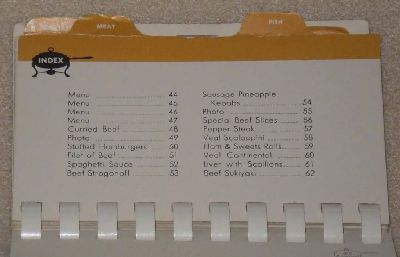 MEAT
FISH
INDEX
Menu 44
Menu 45
Menu 46
Menu 47
Curried Beef 48
Photo 49
Stuffed Hamburgers 50
Filet of Beef 51
Spaghetti Sauce 52
Beef Stroganoff 53
Sausage Pineapple
Kebobs 54
Photo 55
Special Beef Slices 56
Pepper Steak 57
Veal Scaloppini 58
Ham & Sweets Rolls 59
Veal Continental 60
Liver with Scallions 61
Beef Sukiyaki 62